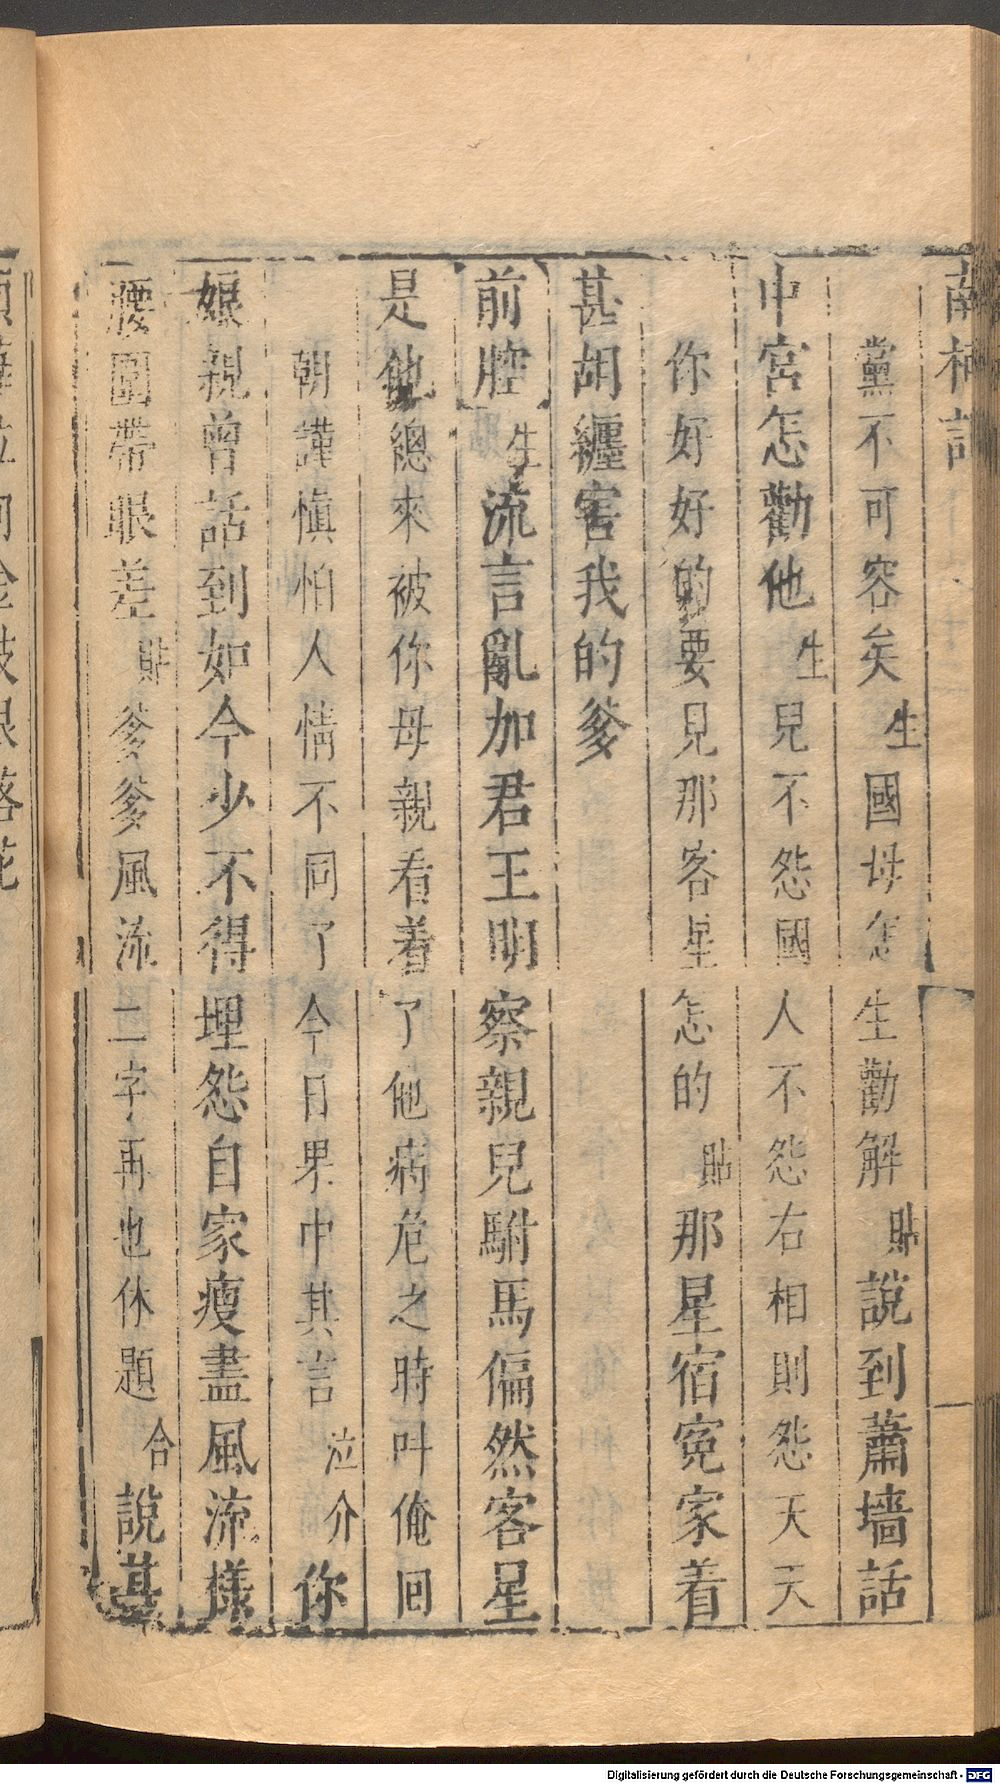 南柯記
黨不可容矣生國母怎生勸解貼說到蕭墻話
中宮怎勸他生兒不怨國人不怨右相則怨天天
你好好的要見那客星怎的貼那星宿冤家着
甚胡纏害我的爹
前腔生流言亂加君王明察親兒駙馬偏然客星
是他總來被你母親看着了他病危之時叫俺回
朝謹慎怕人情不同了今日果中其言泣介你
娘親曾話到如今少不得埋怨自家瘦盡風流樣
腰圍帶眼差貼爹爹風流二字再也休題合說甚
Digitalisierung gefördert durch die Deutsche Forschungsgemeinschaft - DFG